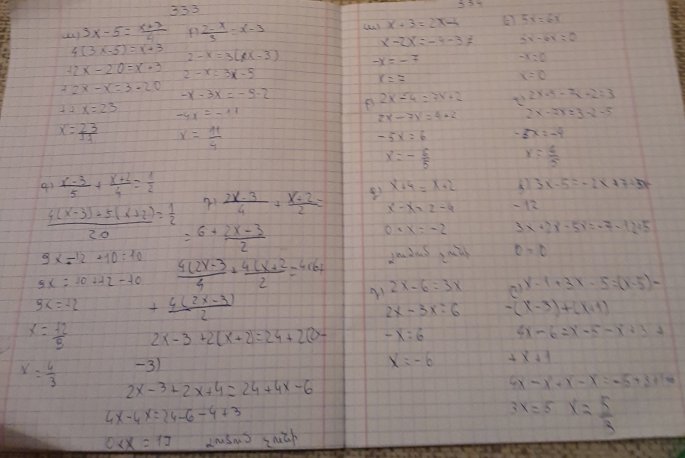 333
3x-5=\frac{x+3}{4}
4(3x-5)=x+3
12x-20=x+3
12x-x=3+20
11x=23
x=\frac{23}{11}
\frac{2-x}{3}=x-3
2-x=3(x-3)
2-x=3x-5
-x-3x=-5-2
-4x=-11
x=\frac{11}{4}
\frac{x-3}{5}+\frac{x+2}{4}=\frac{1}{2}
\frac{4(x-3)+5(x+2)}{20}=\frac{1}{2}
9x-12+10=10
9x=10+12-10
9x=12
x=\frac{12}{9}
x=\frac{4}{3}
\frac{2x-3}{4}+\frac{x+2}{2}=
=6+\frac{2x-3}{2}
+\frac{4(2x-3)}{2}
2x-3+2(x+2)=24+2(2x-
-3)
2x-3+2x+4=24+4x-6
4x-4x=24-6-4+3
0×x=17 չունի լուծում
334
x+3=2x-4
x-2x=-4-3
-x=-7
x=7
5x=6x
5x-6x=0
-x=0
x=0
2x-4=7x+2
2x-7x=4+2
-5x=6
x=-\frac{6}{5}
2x-7x=3-2-5
-5x=-4
x=\frac{4}{5}
x+4=x+2
x-x=2-4
0×x=-2
3x-5=-2x+7-5x
-12
3x+2x-5x=-7-12+5
0=0
2x-6=3x
2x-3x=6
-x=6
x=-6
x-1+3x-5=(x-5)-
-(x-3)+(x+1)
4x-6=x-5-x+3+
+x+1
3x=5 x=\frac{5}{3}